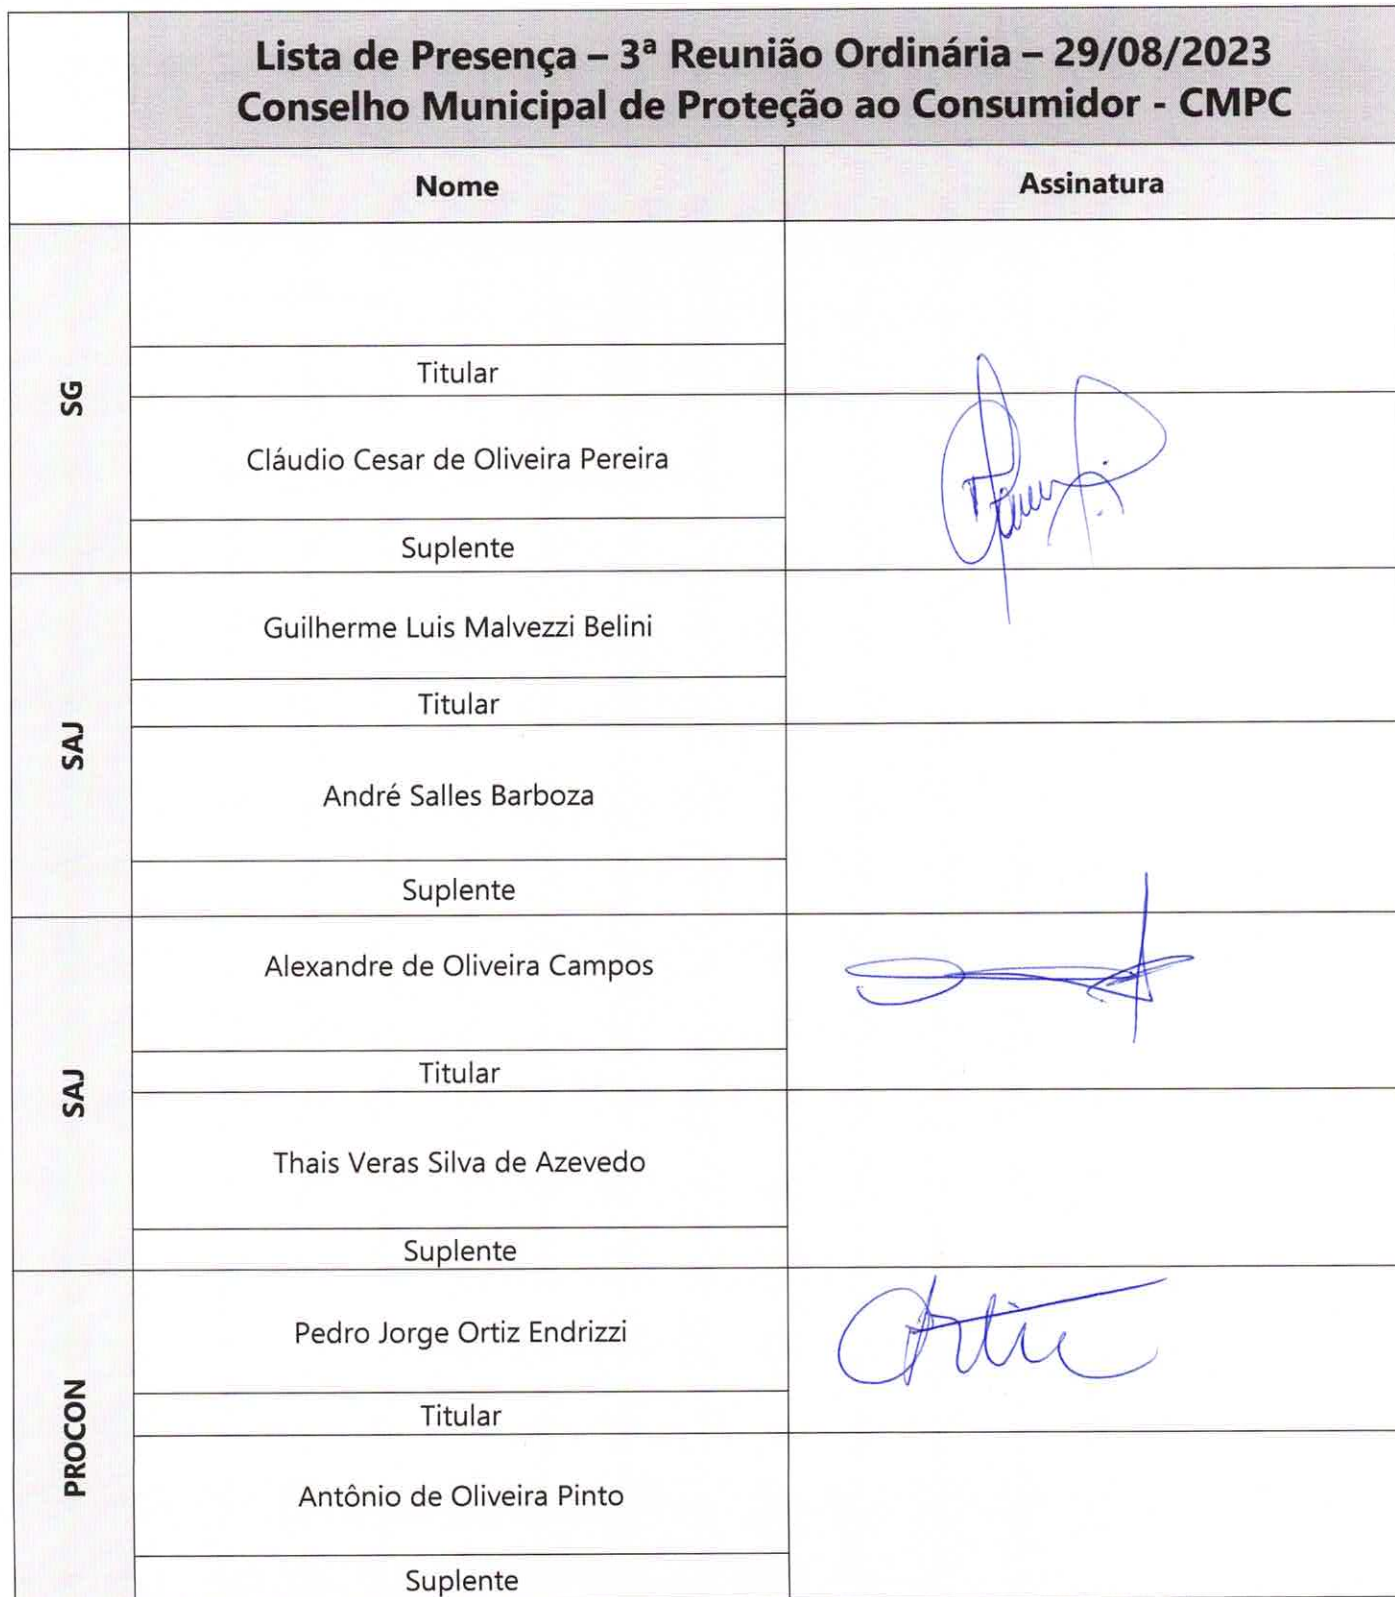 Lista de Presença – 3ª Reunião Ordinária – 29/08/2023
Conselho Municipal de Proteção ao Consumidor - CMPC
Nome
Assinatura
SG
Titular
Cláudio Cesar de Oliveira Pereira
Suplente
SAJ
Guilherme Luis Malvezzi Belini
Titular
André Salles Barboza
Suplente
SAJ
Alexandre de Oliveira Campos
Titular
Thais Veras Silva de Azevedo
Suplente
PROCON
Pedro Jorge Ortiz Endrizzi
Ortiz
Titular
Antônio de Oliveira Pinto
Suplente